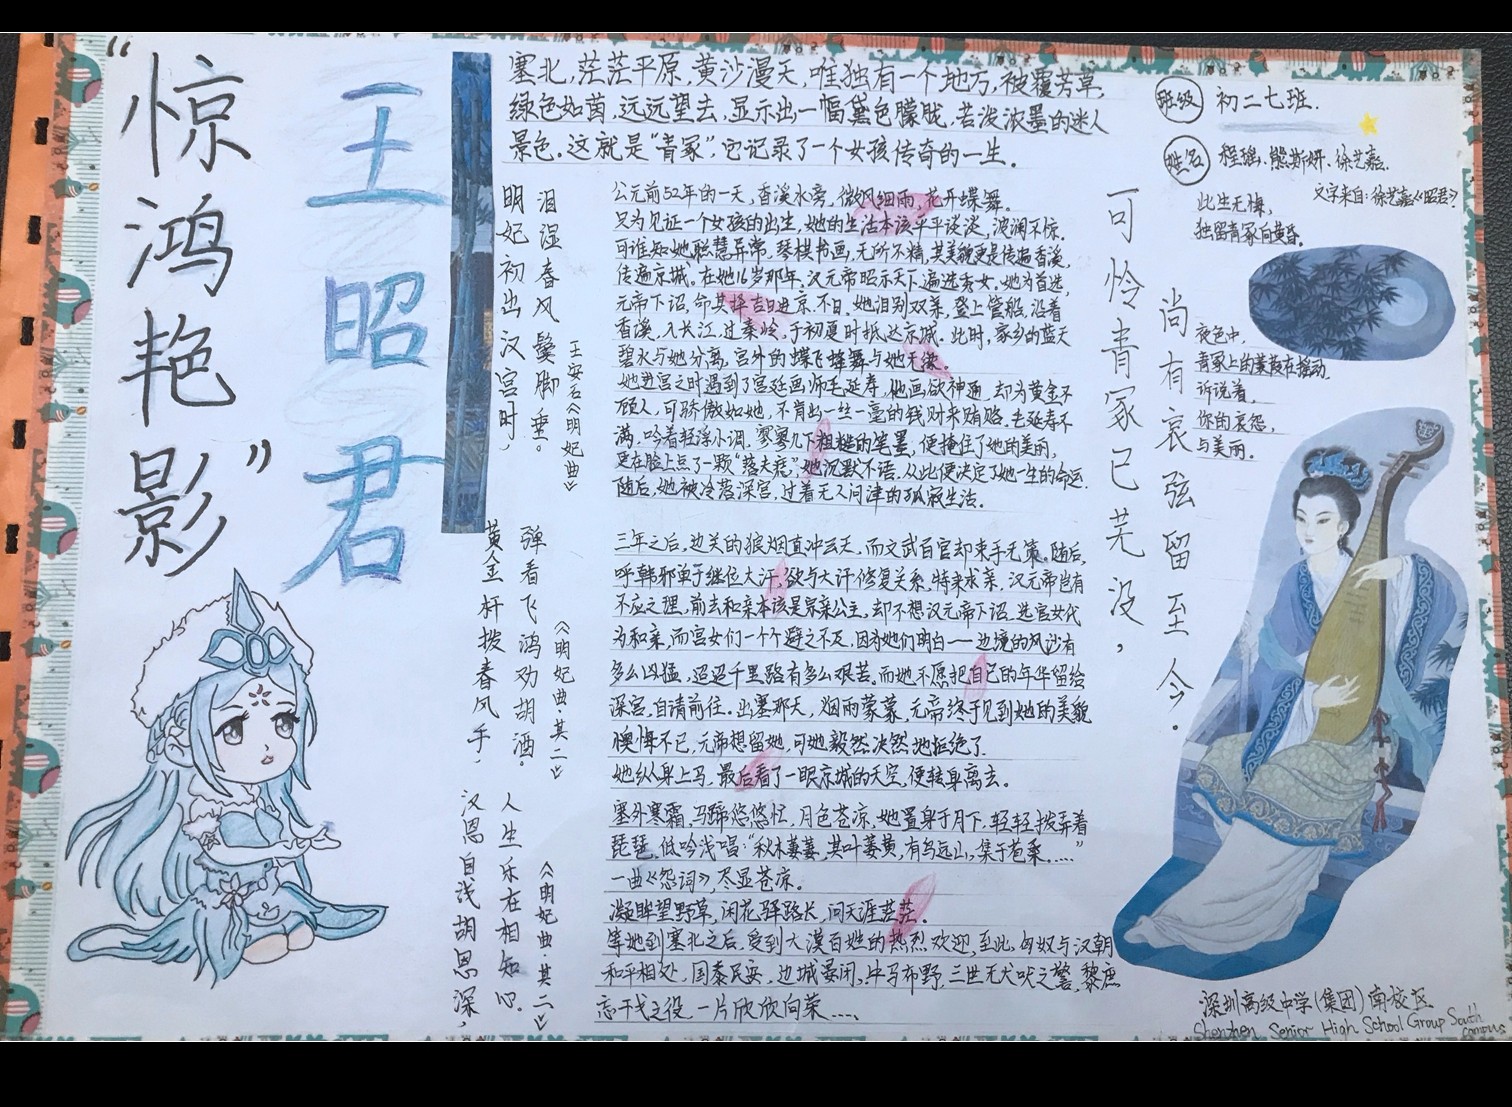 “惊鸿艳影”
王昭君
塞北,茫茫平原,黄沙漫天,唯独有一个地方,被覆芳草,
绿色如茵,远远望去,显示出一幅黛色朦胧,若泼浓墨的迷人
景色.这就是“青冢”,它记录了一个女孩传奇的一生.
明妃初出汉宫时,
泪湿春风鬓脚垂。
王安石《明妃曲》
黄金杆拨春风手,
弹看飞鸿劝胡酒。
《明妃曲·其二》
汉恩自浅胡恩深,
人生乐在相知心.
《明妃曲·其二》
公元前52年的一天,香溪水旁,微风细雨,花开蝶舞.
只为见证一个女孩的出生,她的生活本该平平淡淡,波澜不惊.
可谁知她聪慧异常,琴棋书画,无所不精,其美貌更是传遍香溪,
传遍京城.在她16岁那年,汉元帝昭示天下,遍选秀女,她为首选,
元帝下诏,命其择吉日进京.不日,她泪别双亲,登上官船,沿着
香溪,入长江,过秦岭,于初夏时抵达京城.此时,家乡的蓝天
碧水与她分离,宫外的蝶飞蜂舞与她无缘.
她进宫之时遇到了宫廷画师毛延寿,他画欲神通,却为黄金不
顾人,可骄傲如她,不肯出一丝一毫的钱财来贿赂.毛延寿不
满,吟着轻浮小调,寥寥几下粗糙的笔墨,便掩住了她的美丽,
更在脸上点了一颗“落夫痣”,她沉默不语,从此便决定了她一生的命运.
随后,她被冷落深宫,过着无人问津的孤寂生活.
三年之后,边关的狼烟直冲云天,而文武百官却束手无策.随后,
呼韩邪单于继位大汗,欲与大汗修复关系,特来求亲,汉元帝岂有
不应之理,前去和亲本该是宗亲公主,却不想汉元帝下诏,选宫女代
为和亲,而宫女们一个个避之不及,因为她们明白——边境的风沙有
多么凶猛,迢迢千里路有多么艰苦.而她不愿把自己的年华留给
深宫,自请前往.出塞那天,烟雨蒙蒙,元帝终于见到她的美貌
懊悔不已,元帝想留她,可她毅然决然地拒绝了
她纵身上马,最后看了一眼京城的天空,便转身离去.
塞外寒霜,马蹄悠悠忙,月色苍凉,她置身于月下,轻轻拨弄着
琵琶,低吟浅唱:“秋木萋萋,其叶萎黄,有鸟远山,集于苞桑......”
一曲《怨词》,尽显苍凉.
凝眸望野草,闲花驿路长,问天涯茫茫.
等她到塞北之后,受到大漠百姓的热烈欢迎,至此,匈奴与汉朝
和平相处,国泰民安,边城晏闭,牛马布野,三世无犬吠之警,黎庶
忘干戈之役,一片欣欣向荣....
可怜青冢已芜没,
尚有哀弦留至今.
班级 初二七班.
姓名 程瑶、熊斯妍、徐艺嘉.
文字来自:徐艺嘉《昭君》
此生无悔,
独留青冢向黄昏.
夜色中,
青冢上的蒹葭在摇动,
诉说着,
你的哀怨,
与美丽.
深圳高级中学(集团)南校区
Shenzhen Senior High School Group South
campus